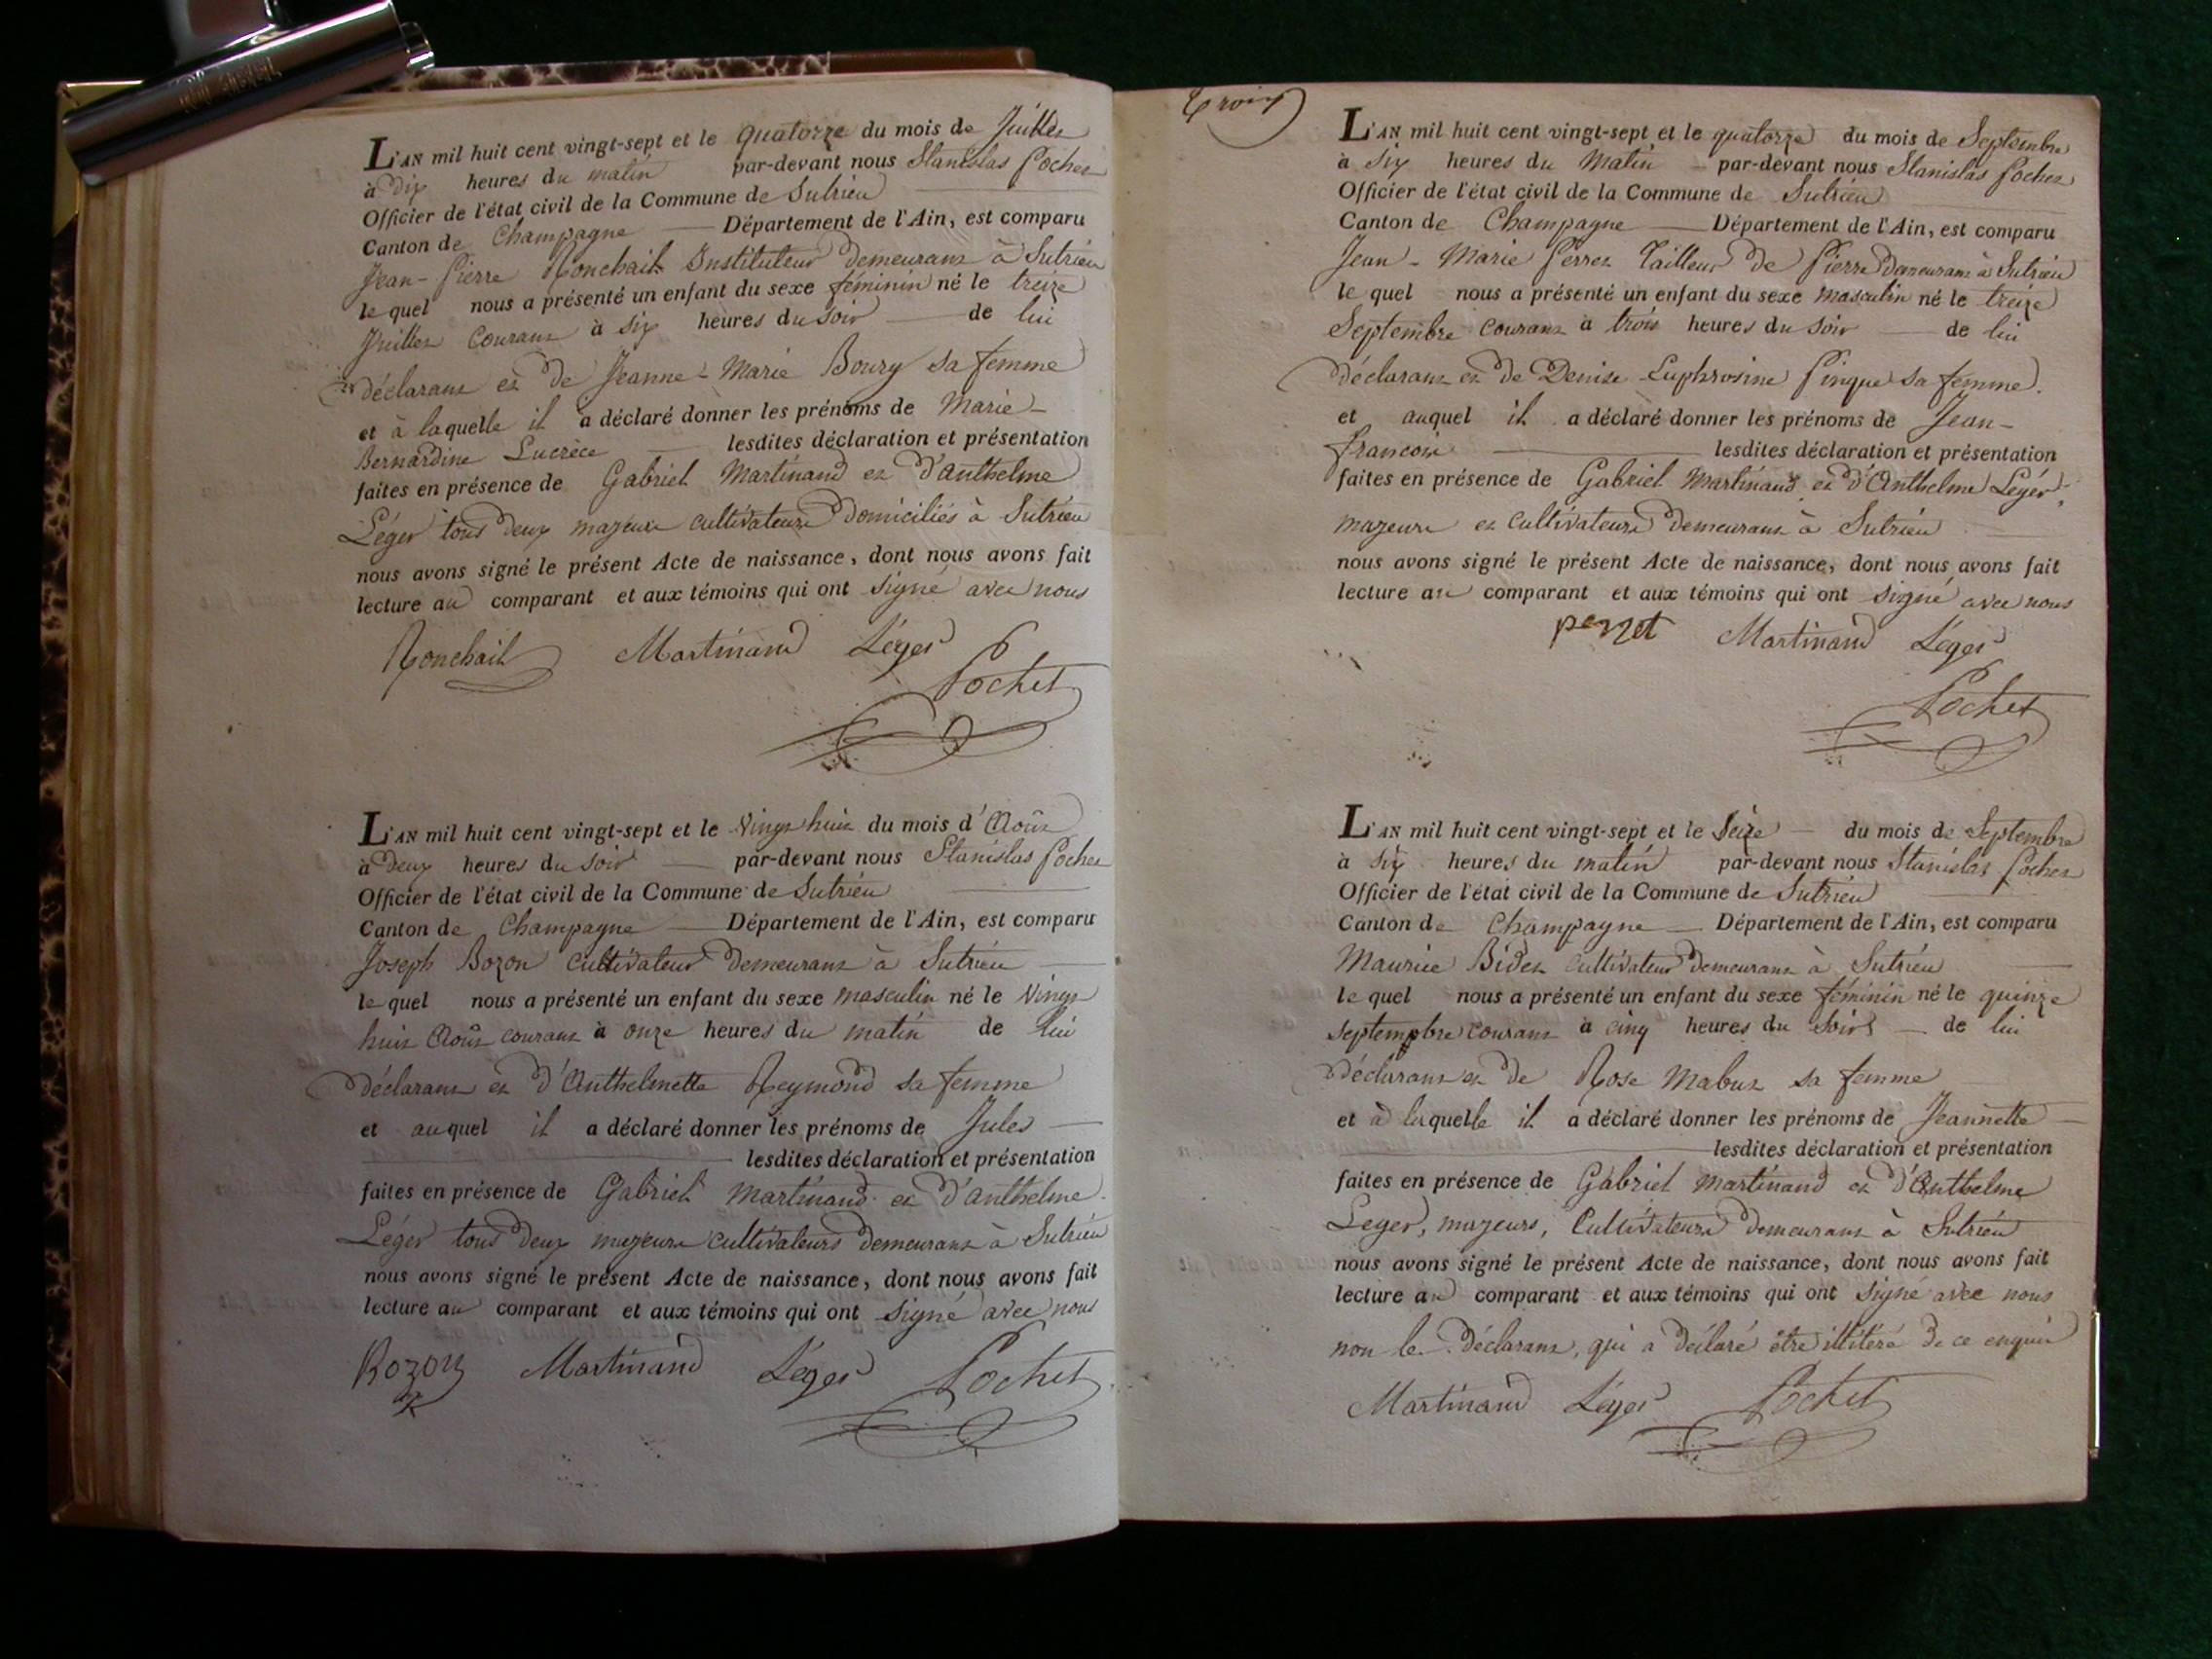 L'AN mil huit cent vingt-sept et le quatorze du mois de Juillet
à dix heures du matin par-devant nous Stanislas Pochet
Officier de l'état civil de la Commune de Sutrieu
Canton de Champagne Département de l'Ain, est comparu
Jean-Pierre Ronchail Instituteur demeurant à Sutrieu
le quel nous a présenté un enfant du sexe féminin né le treize
Juillet courant à six heures du soir de lui
déclarant et de Jeanne-Marie Boury sa femme
et à laquelle il a déclaré donner les prénoms de Marie-
Bernardine Lucrèce lesdites déclaration et présentation
faites en présence de Gabriel Martinand et d'Anthelme
Léger tous deux majeurs cultivateurs domiciliés à Sutrieu
nous avons signé le présent Acte de naissance, dont nous avons fait
lecture au comparant et aux témoins qui ont signé avec nous
Ronchail Martinand Léger
Pochet
L'AN mil huit cent vingt-sept et le Vingt huit du mois d'Août
à deux heures du soir par-devant nous Stanislas Pochet
Officier de l'état civil de la Commune de Sutrieu
Canton de Champagne Département de l'Ain, est comparu
Joseph Bozon cultivateur demeurant à Sutrieu
le quel nous a présenté un enfant du sexe masculin né le Vingt
huit Août courant à onze heures du matin de lui
déclarant et d'Anthelmette Reymond sa femme
et auquel il a déclaré donner les prénoms de Jules
lesdites déclaration et présentation
faites en présence de Gabriel Martinand et d'Anthelme
Léger tous deux majeurs cultivateurs demeurant à Sutrieu
nous avons signé le présent Acte de naissance, dont nous avons fait
lecture au comparant et aux témoins qui ont signé avec nous
Bozon Martinand Léger Pochet
Trois
L'AN mil huit cent vingt-sept et le quatorze du mois de Septembre
à six heures du matin par-devant nous Stanislas Pochet
Officier de l'état civil de la Commune de Sutrieu
Canton de Champagne Département de l'Ain, est comparu
Jean-Marie Perret Tailleur de Pierre demeurant à Sutrieu
le quel nous a présenté un enfant du sexe masculin né le treize
Septembre courant à trois heures du soir de lui
déclarant et de Denise Euphrosine Pingue sa femme.
et auquel il a déclaré donner les prénoms de Jean-
françois lesdites déclaration et présentation
faites en présence de Gabriel Martinand et d'Anthelme Léger,
majeurs et cultivateurs demeurant à Sutrieu
nous avons signé le présent Acte de naissance, dont nous avons fait
lecture au comparant et aux témoins qui ont signé avec nous
perret Martinand Léger
Pochet
L'AN mil huit cent vingt-sept et le Seize du mois de Septembre
à six heures du matin par-devant nous Stanislas Pochet
Officier de l'état civil de la Commune de Sutrieu
Canton de Champagne Département de l'Ain, est comparu
Maurice Bidet cultivateur demeurant à Sutrieu
le quel nous a présenté un enfant du sexe féminin né le quinze
septembre courant à cinq heures du soir de lui
déclarant et de Rose Mabut sa femme
et à laquelle il a déclaré donner les prénoms de Jeannette
lesdites déclaration et présentation
faites en présence de Gabriel Martinand et d'Anthelme
Leger, majeurs, Cultivateurs demeurant à Sutrieu
nous avons signé le présent Acte de naissance, dont nous avons fait
lecture au comparant et aux témoins qui ont signé avec nous
non le déclarant, qui a déclaré être illitéré de ce enquis
Martinand Léger Pochet